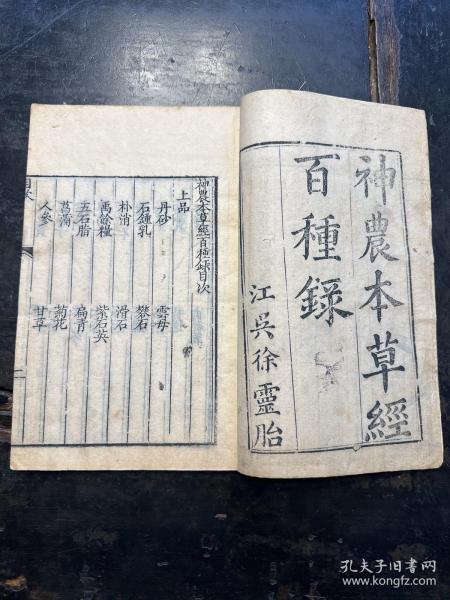 神農本草經
百種錄
江吳徐靈胎
神農本草經百種錄目次
上品
丹砂 雲母
石鍾乳 礬石
朴消 滑石
禹餘糧 紫石英
五石脂 扁青
菖蒲 菊花
人參 甘草
目次
一
孔夫子旧书网
www.kongfz.com